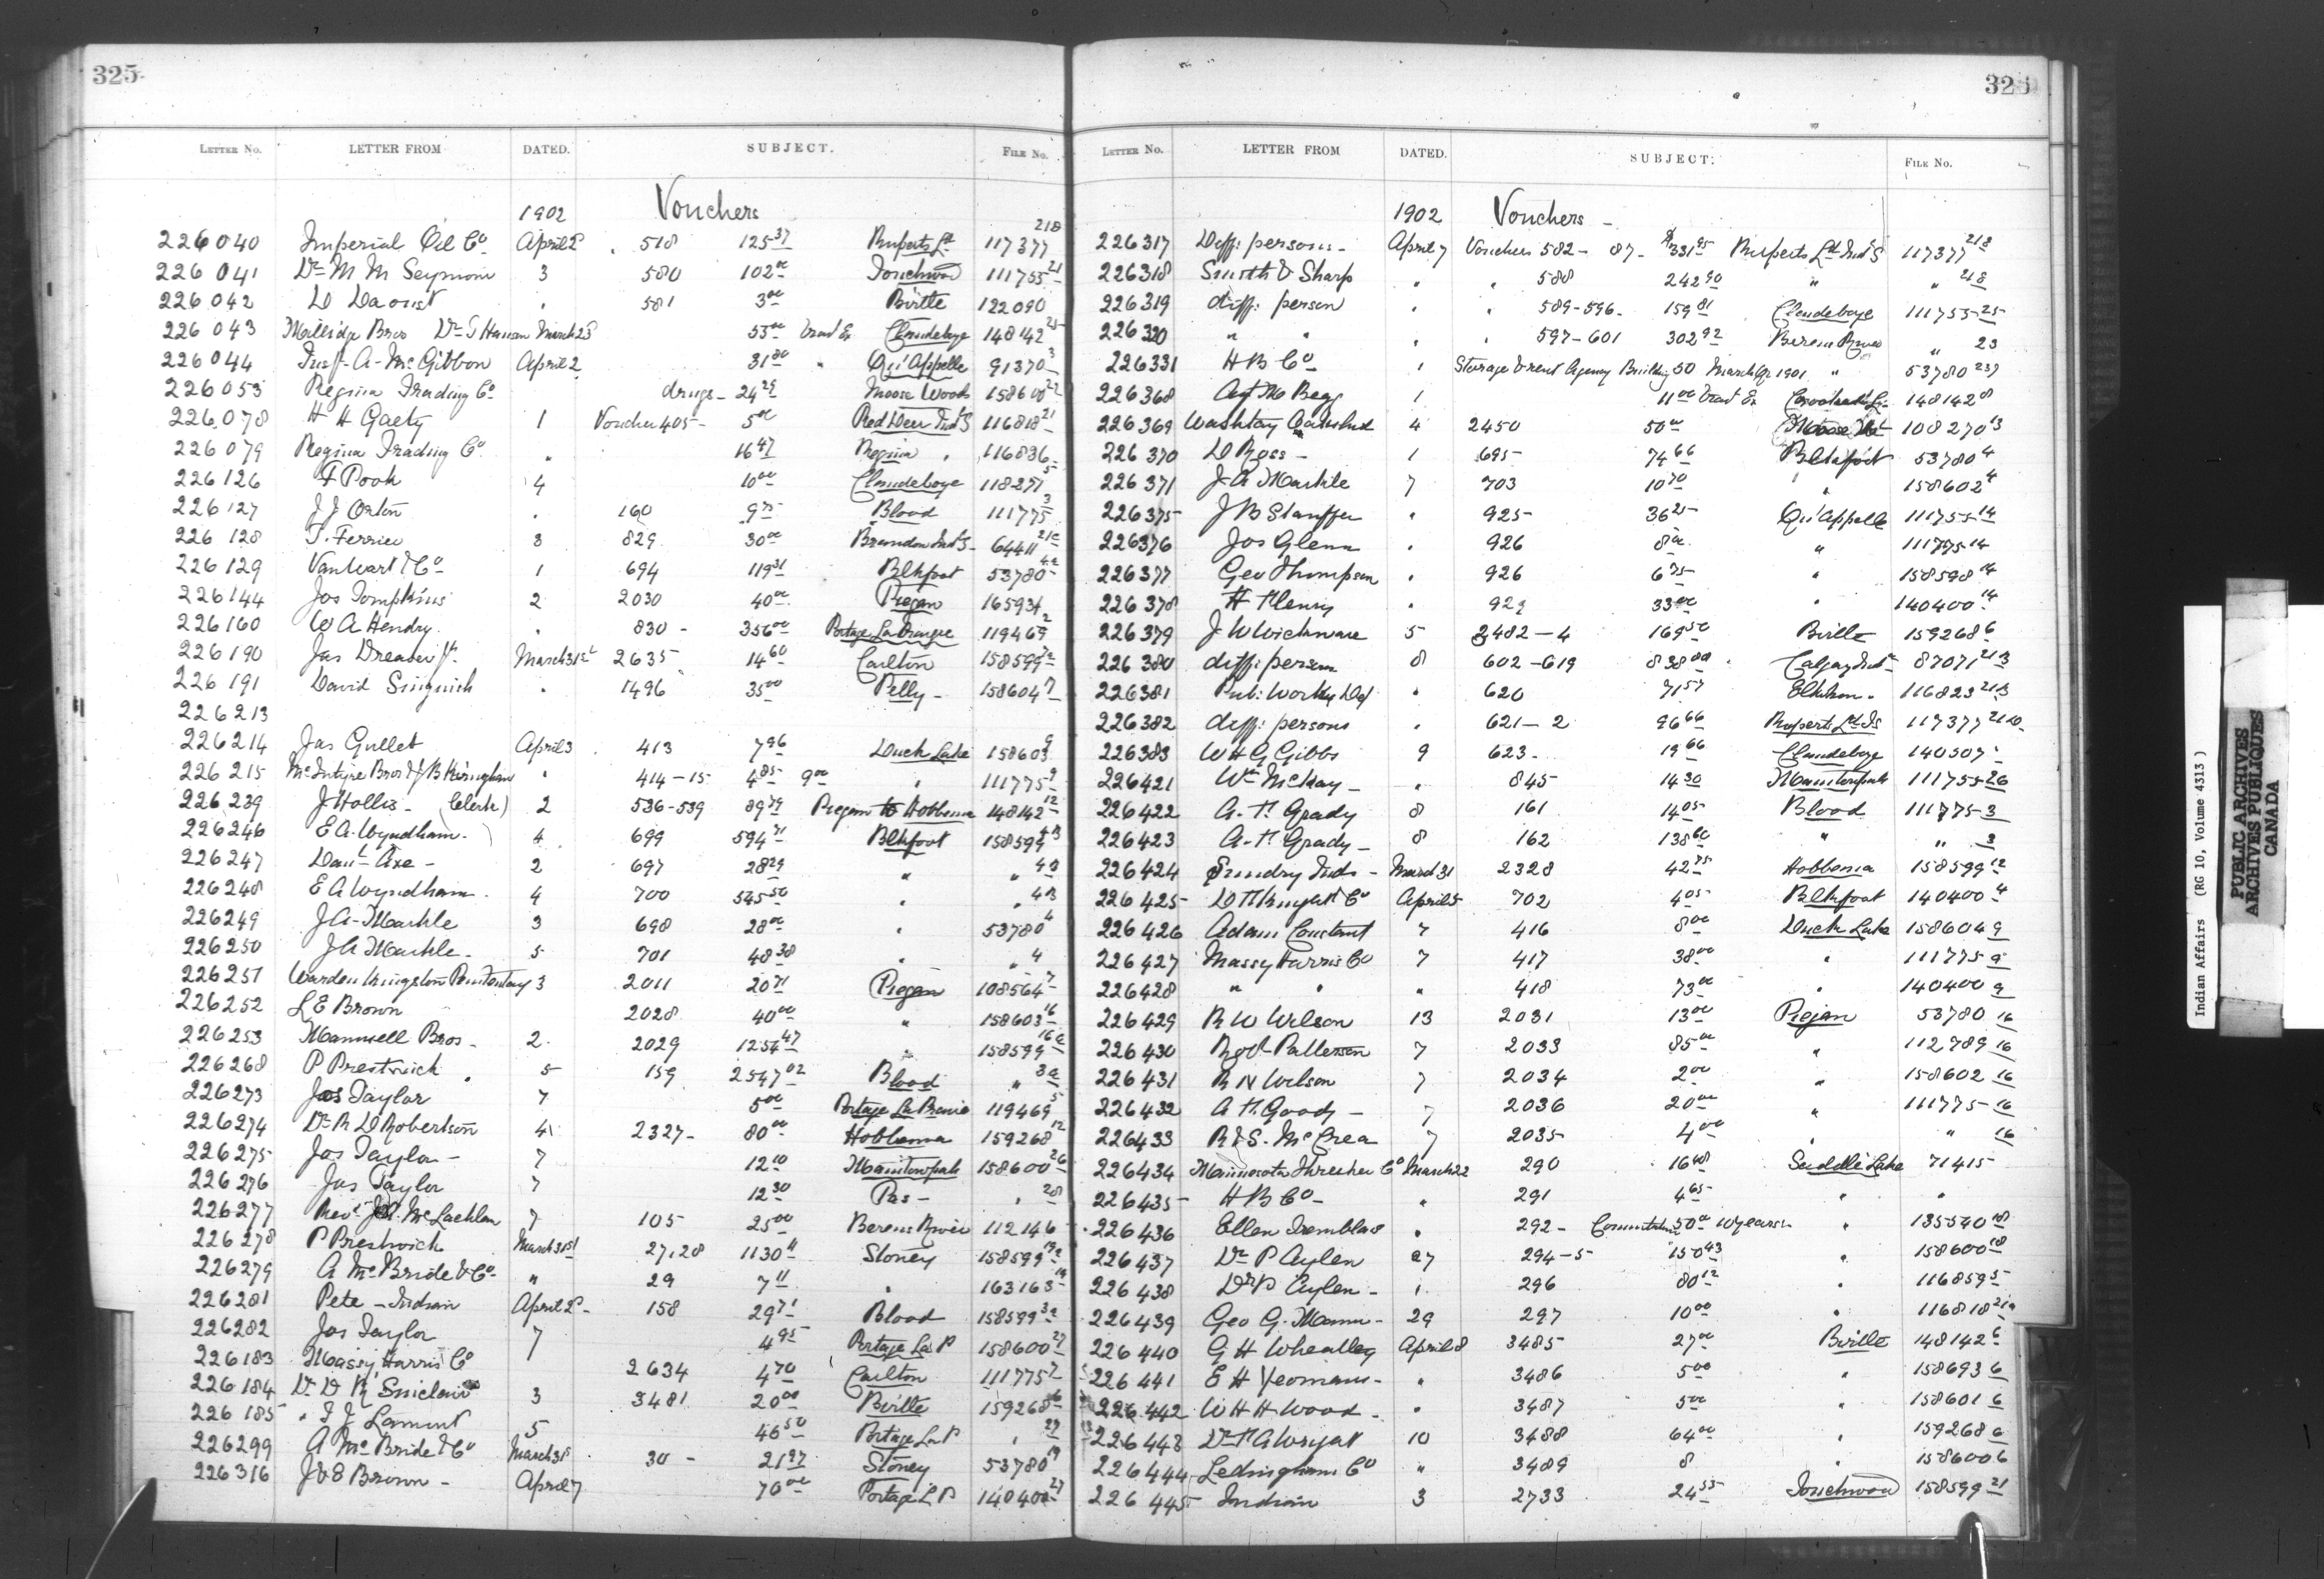 325
LETTER NO. LETTER FROM DATED. SUBJECT. FILE NO.
1902 Vouchers
226040 Imperial Oil Co April 2 518 125 37 Ruperts Ld 117377 21B
226041 Dr M M Seymour 3 580 102 00 Touchwood 111755 21
226042 D Daoust " 581 3 00 Birtle 122090
226043 Bros Dr J Hanson March 25 53 00 Clandeboye 148142 25
226044 A. McGibbon April 2 31 80 " Qu'Appelle 91370 3
226053 Regina Trading Co drugs - 24 29 Moose Woods 158600 22
226078 H H Gaety 1 Voucher 405 - 5 00 Red Deer Ind S 116818 21
226079 Regina Trading Co " 16 47 Regina " 116836
226126 F Pook 4 10 00 Clandeboye 118277 5
226127 J J Orton " 160 9 75 Blood 111775 3
226128 T. Ferrier 3 829 30 00 Brandon Ind S - 64411
226129 VanWart & Co 1 694 119 31 Blkfoot 53780
226144 Jos Tompkins 2 2030 40 00 Piegan 165934
226160 W A Hendry " 830 - 356 00 Portage La Prairie 119469 2
226190 Jas Dreaver Jr. March 31st 2635 14 60 Carlton 158599 7a
226191 David " 1496 35 00 Pelly - 158604 7
226213
226214 Jas Gullet April 3 413 7 96 Duck Lake 158603 9
226215 McIntyre Bros & " 414-15 4 85 9 00 " 111775 9
226239 J Hollis - (Clerk) 2 536-539 89 79 Piegan to Hobbema 148142 12
226246 E A. Wyndham - 4 699 594 71 Blkfoot 158599 4B
226247 Danl Axe - 2 697 28 29 " " 4B
226248 E A Wyndham . 4 700 545 50 " " 4B
226249 J A. Markle 3 698 28 00 " 53780 4
226250 J A Markle - 5 701 48 38 " " 4
226251 Warden Kingston Penitentiary 3 2011 20 71 Piegan 108564 7
226252 L E Brown 2028 40 00 " 158603 16
226253 Maunsell Bros - 2 2029 1254 47 " 158599 16a
226268 P Prestwich 5 159 2547 02 Blood " 3a
226273 Jos Taylor 7 5 00 Portage La Prairie 119469 5
226274 Dr R D Robertson 4 2327 - 80 00 Hobbema 159268 12
226275 Jos Taylor - 7 12 10 Manitowpah 158600 26
226276 Jas Taylor 7 12 30 Pas - " 28
226277 Rev J A. McLachlan 7 105 25 00 Berens River 112146
226278 P Prestwich March 31st 27, 28 1130 11 Stoney 158599 19a
226279 A McBride & Co " 29 7 11 " 163163 19
226281 Pete - Indian April 2 158 29 71 Blood 158599 3a
226282 Jos Taylor 7 4 95 Portage La P 158600 27
226183 Massy Harris Co 2634 4 70 Carlton 111775 7
226184 Dr D K Sinclair 3 3481 20 00 Birtle 159268 6
226185 " T J Lamont 5 46 50 Portage La P " 27
226299 A McBride & Co March 31 30 - 21 97 Stoney 53780 19
226316 J & E Brown - April 7 70 00 Portage L P 140400 27
325
LETTER NO. LETTER FROM DATED. SUBJECT. FILE NO.
1902 Vouchers -
226317 Diff: persons - April 7 Vouchers 582 - 87 - $331 95 Ruperts Ld Ind S 117377 21B
226318 Smith & Sharp " " 588 242 90 " " 21B
226319 diff: person " " 589-596 - 159 81 Clandeboye 111755 25
226320 " " " " 597-601 302 92 Berens River " 23
226331 H B Co " Storage & rent Agency Building 50 March Qr 1901 " 53780 23
226368 Begg 1 11 00 148142 8
226369 Washtay 4 2450 50 00 Moose Mt 108270 13
226370 D Ross - 1 695 74 66 Blkfoot 53780 4
226371 J A Markle 7 703 10 70 " 158602 4
226375 J B Stauffer " 925 36 25 Qu'Appelle 111755 14
226376 Jos Glenn " 926 8 00 " 111775 14
226377 Geo Thompson " 926 6 75 " 158598 14
226378 H Henry " 929 33 00 " 140400 14
226379 J W Wickware 5 3482-4 169 50 Birtle 159268 6
226380 diff: person 8 602-619 838 00 Calgary Ind 87071 21B
226381 Pub: Works Dep " 620 71 57 Elkhorn - 116823 21B
226382 diff: persons " 621-2 96 66 Ruperts Ld Is 117377
226383 W H G Gibbs 9 623 - 19 66 Clandeboye 140507
226421 Wm McKay - " 845 14 30 Manitowpah 111755 26
226422 A. H. Grady 8 161 14 05 Blood 111775 3
226423 A. H. Grady - 8 162 138 60 " " 3
226424 Sundry Inds - March 31 2328 42 75 Hobbema 158599 12
226425 D H Knight & Co April 5 702 4 05 Blkfoot 140400 4
226426 Adam Constant 7 416 8 00 Duck Lake 158604 9
226427 Massy Harris Co 7 417 38 00 " 111775 9
226428 " " " 418 73 00 " 140400 9
226429 R W Wilson 13 2031 13 00 Piejan 53780 16
226430 Robt Patterson 7 2033 85 00 " 112789 16
226431 R N Wilson 7 2034 2 00 " 158602 16
226432 A H. Goody - 7 2036 20 00 " 111775 16
226433 R & S. McCrea 7 2035 4 00 " " 16
226434 Minnesota Thresher Co March 22 290 16 48 Saddle Lake 71415
226435 H B Co - " 291 4 65 " "
226436 Ellen Tremblay " 292 - Commutation 50 00 10 years " 135540 18
226437 Dr P Aylen 27 294-5 150 43 " 158600 18
226438 Dr P Aylen - " 296 80 12 " 116859 5
226439 Geo G. Mann - 29 297 10 00 " 116818 21a
226440 G H Wheatley April 8 3485 27 00 Birtle 148142 6
226441 E H Yeomans - " 3486 5 00 " 158693 6
226442 W H H Wood - " 3487 5 00 " 158601 6
226443 Dr H A Wright 10 3488 64 00 " 159268 6
226444 Ledingham Co " 3489 8 " 158600 6
226445 Indian 3 2733 24 55 Touchwood 158599 21
Indian Affairs (RG 10, Volume 4313)
PUBLIC ARCHIVES
ARCHIVES PUBLIQUES
CANADA